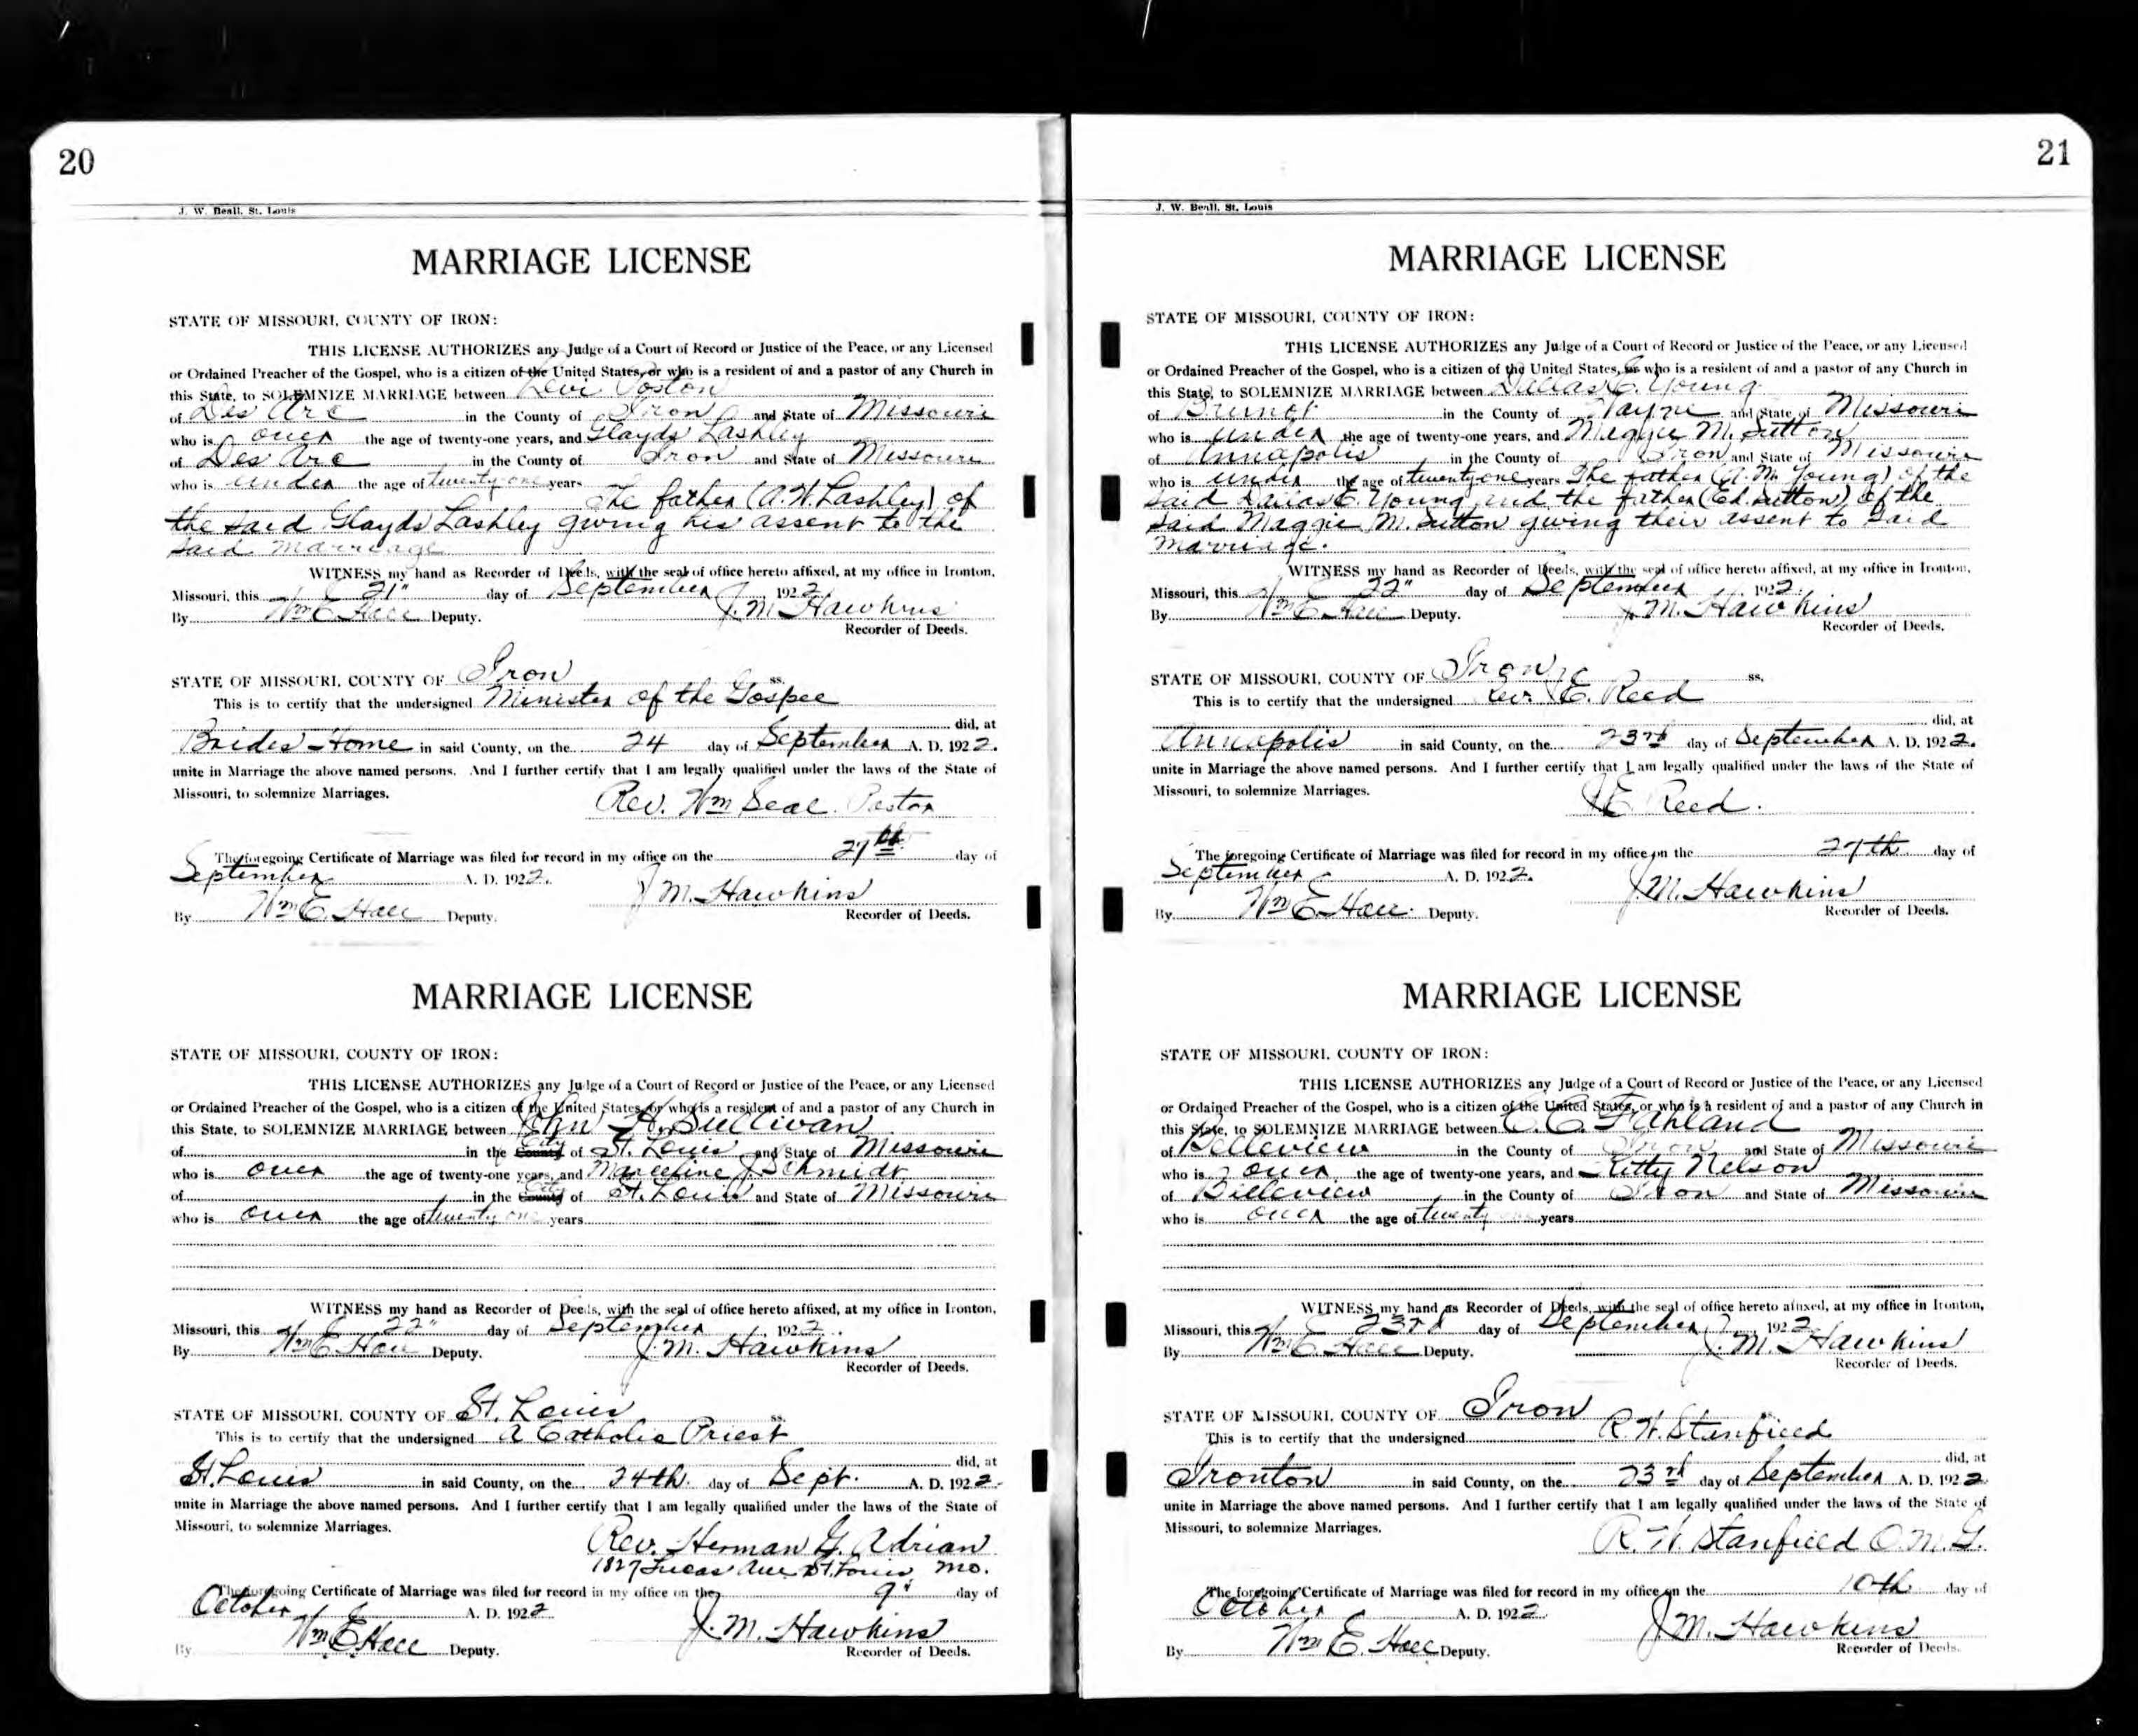 20
J. W. Beall, St. Louis
MARRIAGE LICENSE
STATE OF MISSOURI, COUNTY OF IRON:
THIS LICENSE AUTHORIZES any Judge of a Court of Record or Justice of the Peace, or any Licensed
or Ordained Preacher of the Gospel, who is a citizen of the United States, or who is a resident of and a pastor of any Church in
this State, to SOLEMNIZE MARRIAGE between Levi Poston
of Des Arc in the County of Iron and State of Missouri
who is over the age of twenty-one years, and Glayds Lashley
of Des Arc in the County of Iron and State of Missouri
who is under the age of twenty one years
The father (A.W. Lashley) of
the said Glayds Lashley giving his assent to the
said marriage
WITNESS my hand as Recorder of Deeds, with the seal of office hereto affixed, at my office in Ironton,
Missouri, this 21" day of September, 1922
By Wm E Hall Deputy. J. M. Hawkins
Recorder of Deeds.
STATE OF MISSOURI, COUNTY OF Iron ss.
This is to certify that the undersigned Minister of the Gospel
did, at
Brides Home in said County, on the 24 day of September A. D. 1922.
unite in Marriage the above named persons. And I further certify that I am legally qualified under the laws of the State of
Missouri, to solemnize Marriages.
Rev. Wm Seal Pastor
The foregoing Certificate of Marriage was filed for record in my office on the 27th day of
September A. D. 1922.
J M. Hawkins
By Wm E. Hall Deputy. Recorder of Deeds.
MARRIAGE LICENSE
STATE OF MISSOURI, COUNTY OF IRON:
THIS LICENSE AUTHORIZES any Judge of a Court of Record or Justice of the Peace, or any Licensed
or Ordained Preacher of the Gospel, who is a citizen of the United States, or who is a resident of and a pastor of any Church in
this State, to SOLEMNIZE MARRIAGE between John H. Sullivan
of in the County City of St. Louis and State of Missouri
who is over the age of twenty-one years, and Marcefine J. Schmidt
of in the County City of St. Louis and State of Missouri
who is over the age of twenty one years
WITNESS my hand as Recorder of Deeds, with the seal of office hereto affixed, at my office in Ironton,
Missouri, this 22" day of September, 1922.
By Wm E Hall Deputy. J. M. Hawkins
Recorder of Deeds.
STATE OF MISSOURI, COUNTY OF St. Louis ss.
This is to certify that the undersigned A Catholic Priest
did, at
St. Louis in said County, on the 24th. day of Sept. A. D. 1922.
unite in Marriage the above named persons. And I further certify that I am legally qualified under the laws of the State of
Missouri, to solemnize Marriages.
Rev. Herman G. Adrian
1827 Lucas Ave St. Louis, Mo.
The foregoing Certificate of Marriage was filed for record in my office on the 9" day of
October A. D. 1922
J. M. Hawkins
By Wm E Hall Deputy. Recorder of Deeds.
21
J. W. Beall, St. Louis
MARRIAGE LICENSE
STATE OF MISSOURI, COUNTY OF IRON:
THIS LICENSE AUTHORIZES any Judge of a Court of Record or Justice of the Peace, or any Licensed
or Ordained Preacher of the Gospel, who is a citizen of the United States, or who is a resident of and a pastor of any Church in
this State, to SOLEMNIZE MARRIAGE between Dallas E. Young
of Brunot in the County of Wayne and State of Missouri
who is under the age of twenty-one years, and Maggie M. Sutton
of Annapolis in the County of Iron and State of Missouri
who is under the age of twenty one years The father (A. M. Young) of the
said Dallas E. Young and the father (Ed. Sutton) of the
said Maggie M. Sutton giving their assent to said
marriage.
WITNESS my hand as Recorder of Deeds, with the seal of office hereto affixed, at my office in Ironton,
Missouri, this 22" day of September 1922.
By Wm E. Hall Deputy. J. M. Hawkins
Recorder of Deeds.
STATE OF MISSOURI, COUNTY OF Iron ss.
This is to certify that the undersigned Rev. J. E. Reed
did, at
Annapolis in said County, on the 23rd day of September A. D. 1922.
unite in Marriage the above named persons. And I further certify that I am legally qualified under the laws of the State of
Missouri, to solemnize Marriages.
J E Reed.
The foregoing Certificate of Marriage was filed for record in my office on the 27th day of
September A. D. 1922.
J. M. Hawkins
By Wm E. Hall. Deputy. Recorder of Deeds.
MARRIAGE LICENSE
STATE OF MISSOURI, COUNTY OF IRON:
THIS LICENSE AUTHORIZES any Judge of a Court of Record or Justice of the Peace, or any Licensed
or Ordained Preacher of the Gospel, who is a citizen of the United States, or who is a resident of and a pastor of any Church in
this State, to SOLEMNIZE MARRIAGE between C. C. Fahland
of Belleview in the County of Iron and State of Missouri
who is over the age of twenty-one years, and Kitty Nelson
of Belleview in the County of Iron and State of Missouri
who is over the age of twenty one years
WITNESS my hand as Recorder of Deeds, with the seal of office hereto affixed, at my office in Ironton,
Missouri, this 23rd day of September, 1922
By Wm E. Hall Deputy. J. M. Hawkins
Recorder of Deeds.
STATE OF MISSOURI, COUNTY OF Iron
This is to certify that the undersigned R. W. Stanfield
did, at
Ironton in said County, on the 23rd day of September A. D. 1922
unite in Marriage the above named persons. And I further certify that I am legally qualified under the laws of the State of
Missouri, to solemnize Marriages.
R. W. Stanfield O. M. G.
The foregoing Certificate of Marriage was filed for record in my office on the 10th day of
October A. D. 1922.
J M. Hawkins
By Wm E. Hall Deputy. Recorder of Deeds.